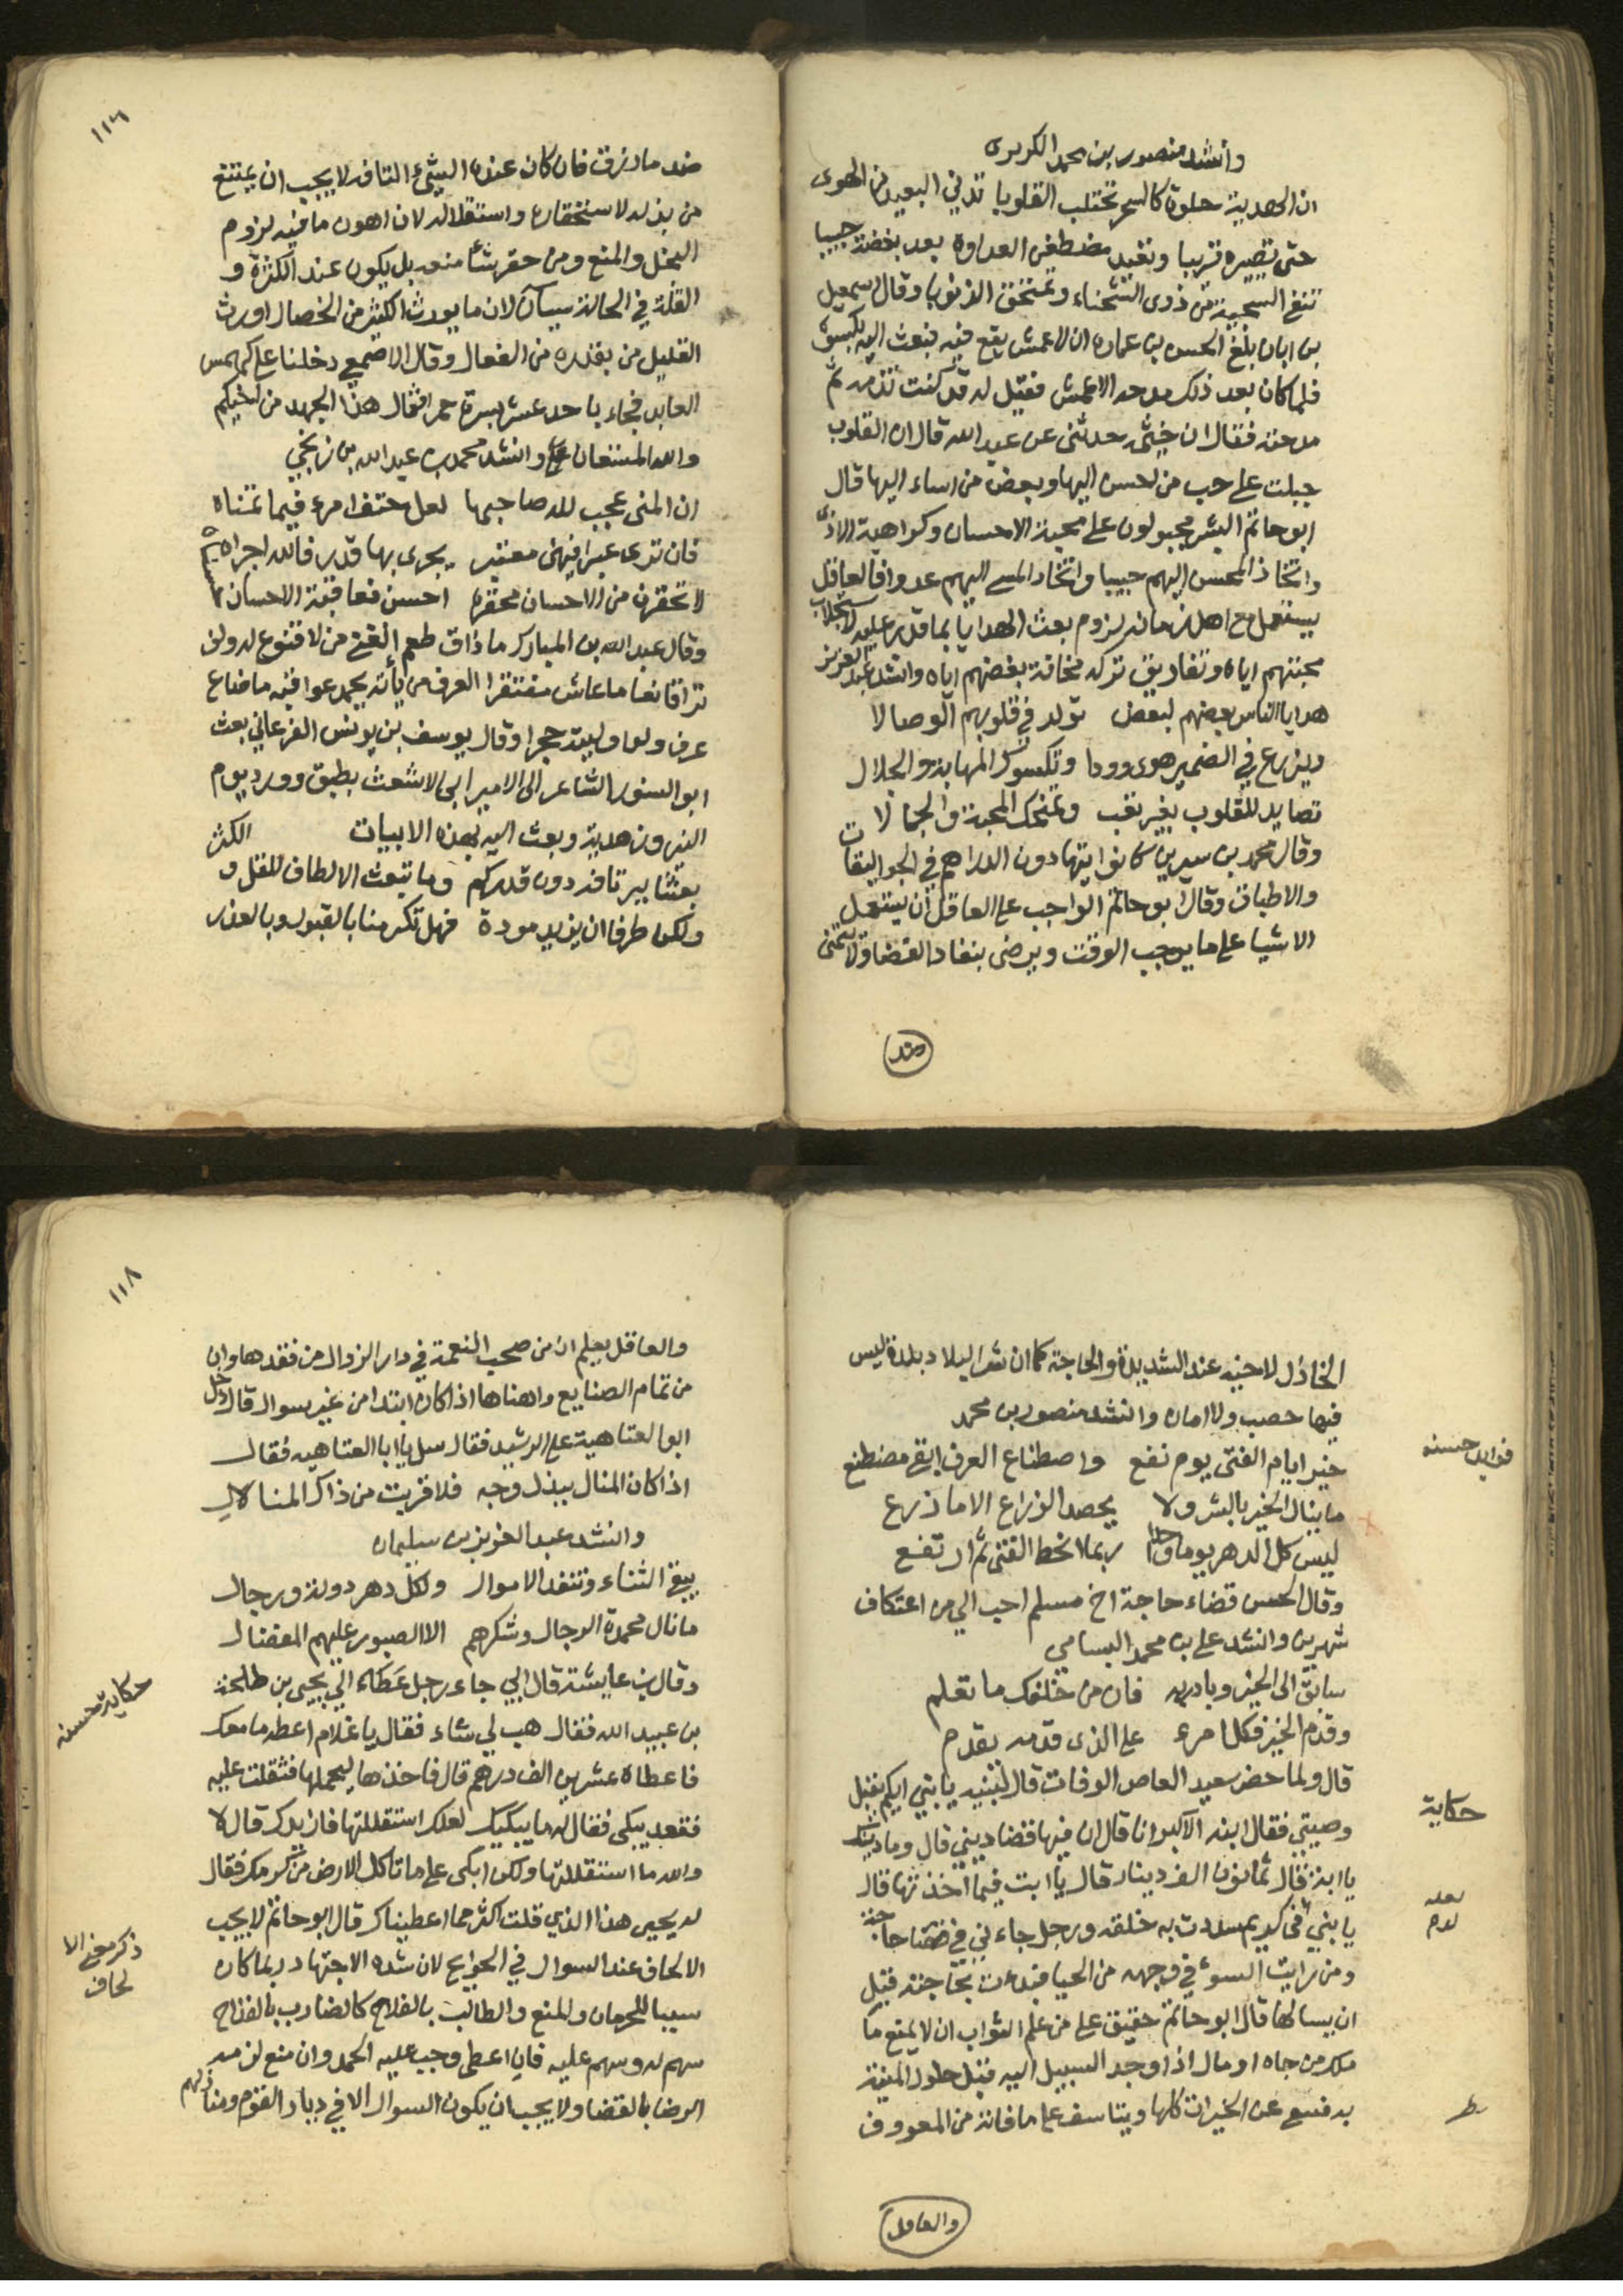 وانشد منصور بن محمد الكريرى
ان الهدية حلوة كالسحر تختلب القلوبا تدني البعيد من الهوى
حتى تصيره قريبا وتعيد مضطغن العداوة بعد بغضته حبيبا
تنفي السخيمة من ذوى الشحناء وتمتحق الذنوبا وقال اسمعيل
بن ابان بلغ الحسن بن عماره ان الاعمش يقع فيه فبعث اليه بكسوة
فلما كان بعد ذلك مدحه الاعمش فقيل له قد كنت تذمه ثم
مدحته فقال ان خيثمه حدثنى عن عبد الله قال ان القلوب
جبلت على حب من احسن اليها وبغض من اساء اليها قال
ابو حاتم البشر مجبولون على محبة الاحسان وكراهية الاذى
واتخاذ المحسن اليهم حبيبا واتخاد المسي اليهم عدوا فالعاقل
يستعمل مع اهل زمانه لزوم بعث الهدايا بما قدر عليه لاستجلاب
محبتهم اياه وتفاديق تركه مخافة بغضهم اياه وانشد عبد العزيز
هدايا الناس بعضهم لبعض تولد في قلوبهم الوصالا
ويزرع في الضمير هوى وودا وتكسوك المهابة والجلال
تصايد للقلوب بغير تعب وتمنحك المحبة والجمالا
وقال محمد بن سيرين كانوا يتهادون الدراهم في الجواليقات
والاطباق وقال ابو حاتم الواجب على العاقل ان يستعمل
الاشيا على ما يوجب الوقت ويرضى بنفاد القضا ولا يتمنى
ضد
١١٦
ضد ما رزق فان كان عنده الشيء التافه لا يجب ان يمتنع
من بذله لاستحقاره واستقلاله لان اهون ما فيه لزوم
البخل والمنع ومن حقر شئا منعه بل يكون عند الكثرة و
القلة في الحالة سيان لان ما يورث الكثير من الخصال اورث
القليل من بقدره من الفعال وقال الاصمعي دخلنا على كهمس
العابد فجاء باحد عشر بسرة حمرا فقال هذا الجهد من اخيكم
والله المستعان وانشد محمد بن عبد الله بن زنجي
ان المنى عجب لله صاحبها لعل حتف امرء فيما تمناه
فان ترى عبرا فيهن معتبر يجرى بها قدر فالله اجراه
لا تحقرن من الاحسان محقرة احسن فعاقبة الاحسان حسناه
وقال عبد الله بن المبارك ما ذاق طعم الغنى من لا قنوع له ولن
ترا قانعا ما عاش مفتقرا العرف من يأته يحمد عواقبه ما ضاع
عرف ولو اوليته حجرا وقال يوسف بن يونس الفرغاني بعث
ابو السنور الشاعر الى الامير ابى الاشعث بطبق وورد يوم
النيروز هدية وبعث اليه بهذه الابيات
بعثنا ببر تافه دون قدركم وما تبعث الالطاف للقل و الكثر
ولكن طرفا ان يزيد مودة فهل تكرمنا بالقبول وبالعذر
الخاذل لاخيه عند الشديدة والحاجة كما ان شر البلاد بلدة ليس
فيها خصب ولا امان وانشد منصور بن محمد
فوايد حسنه
خير ايام الفتى يوم نفع واصطناع العرف ابقى مضطنع
ما ينال الخير بالشر ولا يحصد الزراع الا ما زرع
ليس كل الدهر يوما واحدا ربما انحط الفتى ثم ارتفع
وقال الحسن قضاء حاجة اخ مسلم احب الي من اعتكاف
شهرين وانشد على بن محمد البسامي
سابق الى الخير وبادر به فان من خلفك ما تعلم
وقدم الخير فكل امرء على الذى قدمه يقدم
قال ولما حضر سعيد العاص الوفات قال لبنيه يا بني ايكم يقبل
حكاية
وصيتي فقال ابنه الاكبر انا قال ان فيها قضا ديني قال وما دينك
يا ابة قال ثمانون الف دينار قال يا ابت فيما اخذتها قال
يا بني في كريم سددت به خلقه ورجل جاءني في حاجة
ومن رايت السوء في وجهه من الحيا فبدءت بحاجته قبل
ان يسالها قال ابو حاتم حقيق على من علم الثواب ان لا يمنع ما
ملك من جاه او مال اذا وجد السبيل اليه قبل حلول المنية
به فتسع عن الخيرات كلها ويتاسف على ما فاته من المعروف
والعاقل
١١٨
والعاقل يعلم ان من صحب النعمة في دار الزوال من فقدها وان
من تمام الصنايع واهناها اذا كان ابتدا من غير سوال قال دخل
ابو العتاهية على الرشيد فقال سل يا ابا العتاهيه فقال
اذا كان المنال ببذل وجه فلا قربت من ذاك المنالال
وانشد عبد العزيز بن سليمان
يبقى الثناء وتنفد الاموال ولكل دهر دولة ورجال
ما نال محمدة الرجال وشكرهم الا الصبور عليهم المفضال
وقال بن عايشة قال ابي جاء رجل عَطَّاء الى يحيى بن طلحة
حكاية حسنه
بن عبيد الله فقال هب لي شاء فقال يا غلام اعطه ما معك
فاعطاه عشرين الف درهم قال فاخذها ليحملها فثقلت عليه
فقعد يبكى فقال له ما يبكيك لعلك استقللتها فازيدك قال لا
والله ما استقللتها ولكن ابكى على ما تاكل الارض من كرمك فقال
له يحيى هذا الذي قلت اكثر مما اعطيناك قال ابو حاتم لا يجب
ذكر معني الا
لحاف
الالحاف عند السوال في الحوايج لان شده الاجتهاد ربما كان
سببا للحرمان والمنع والطالب بالفلاح كالضارب بالقداح
سهم له وسهم عليه فان اعطى وجب عليه الحمد وان منع لزمه
الرضا بالقضا ولا يجب ان يكون السوال الا في ديار القوم ومنازلهم